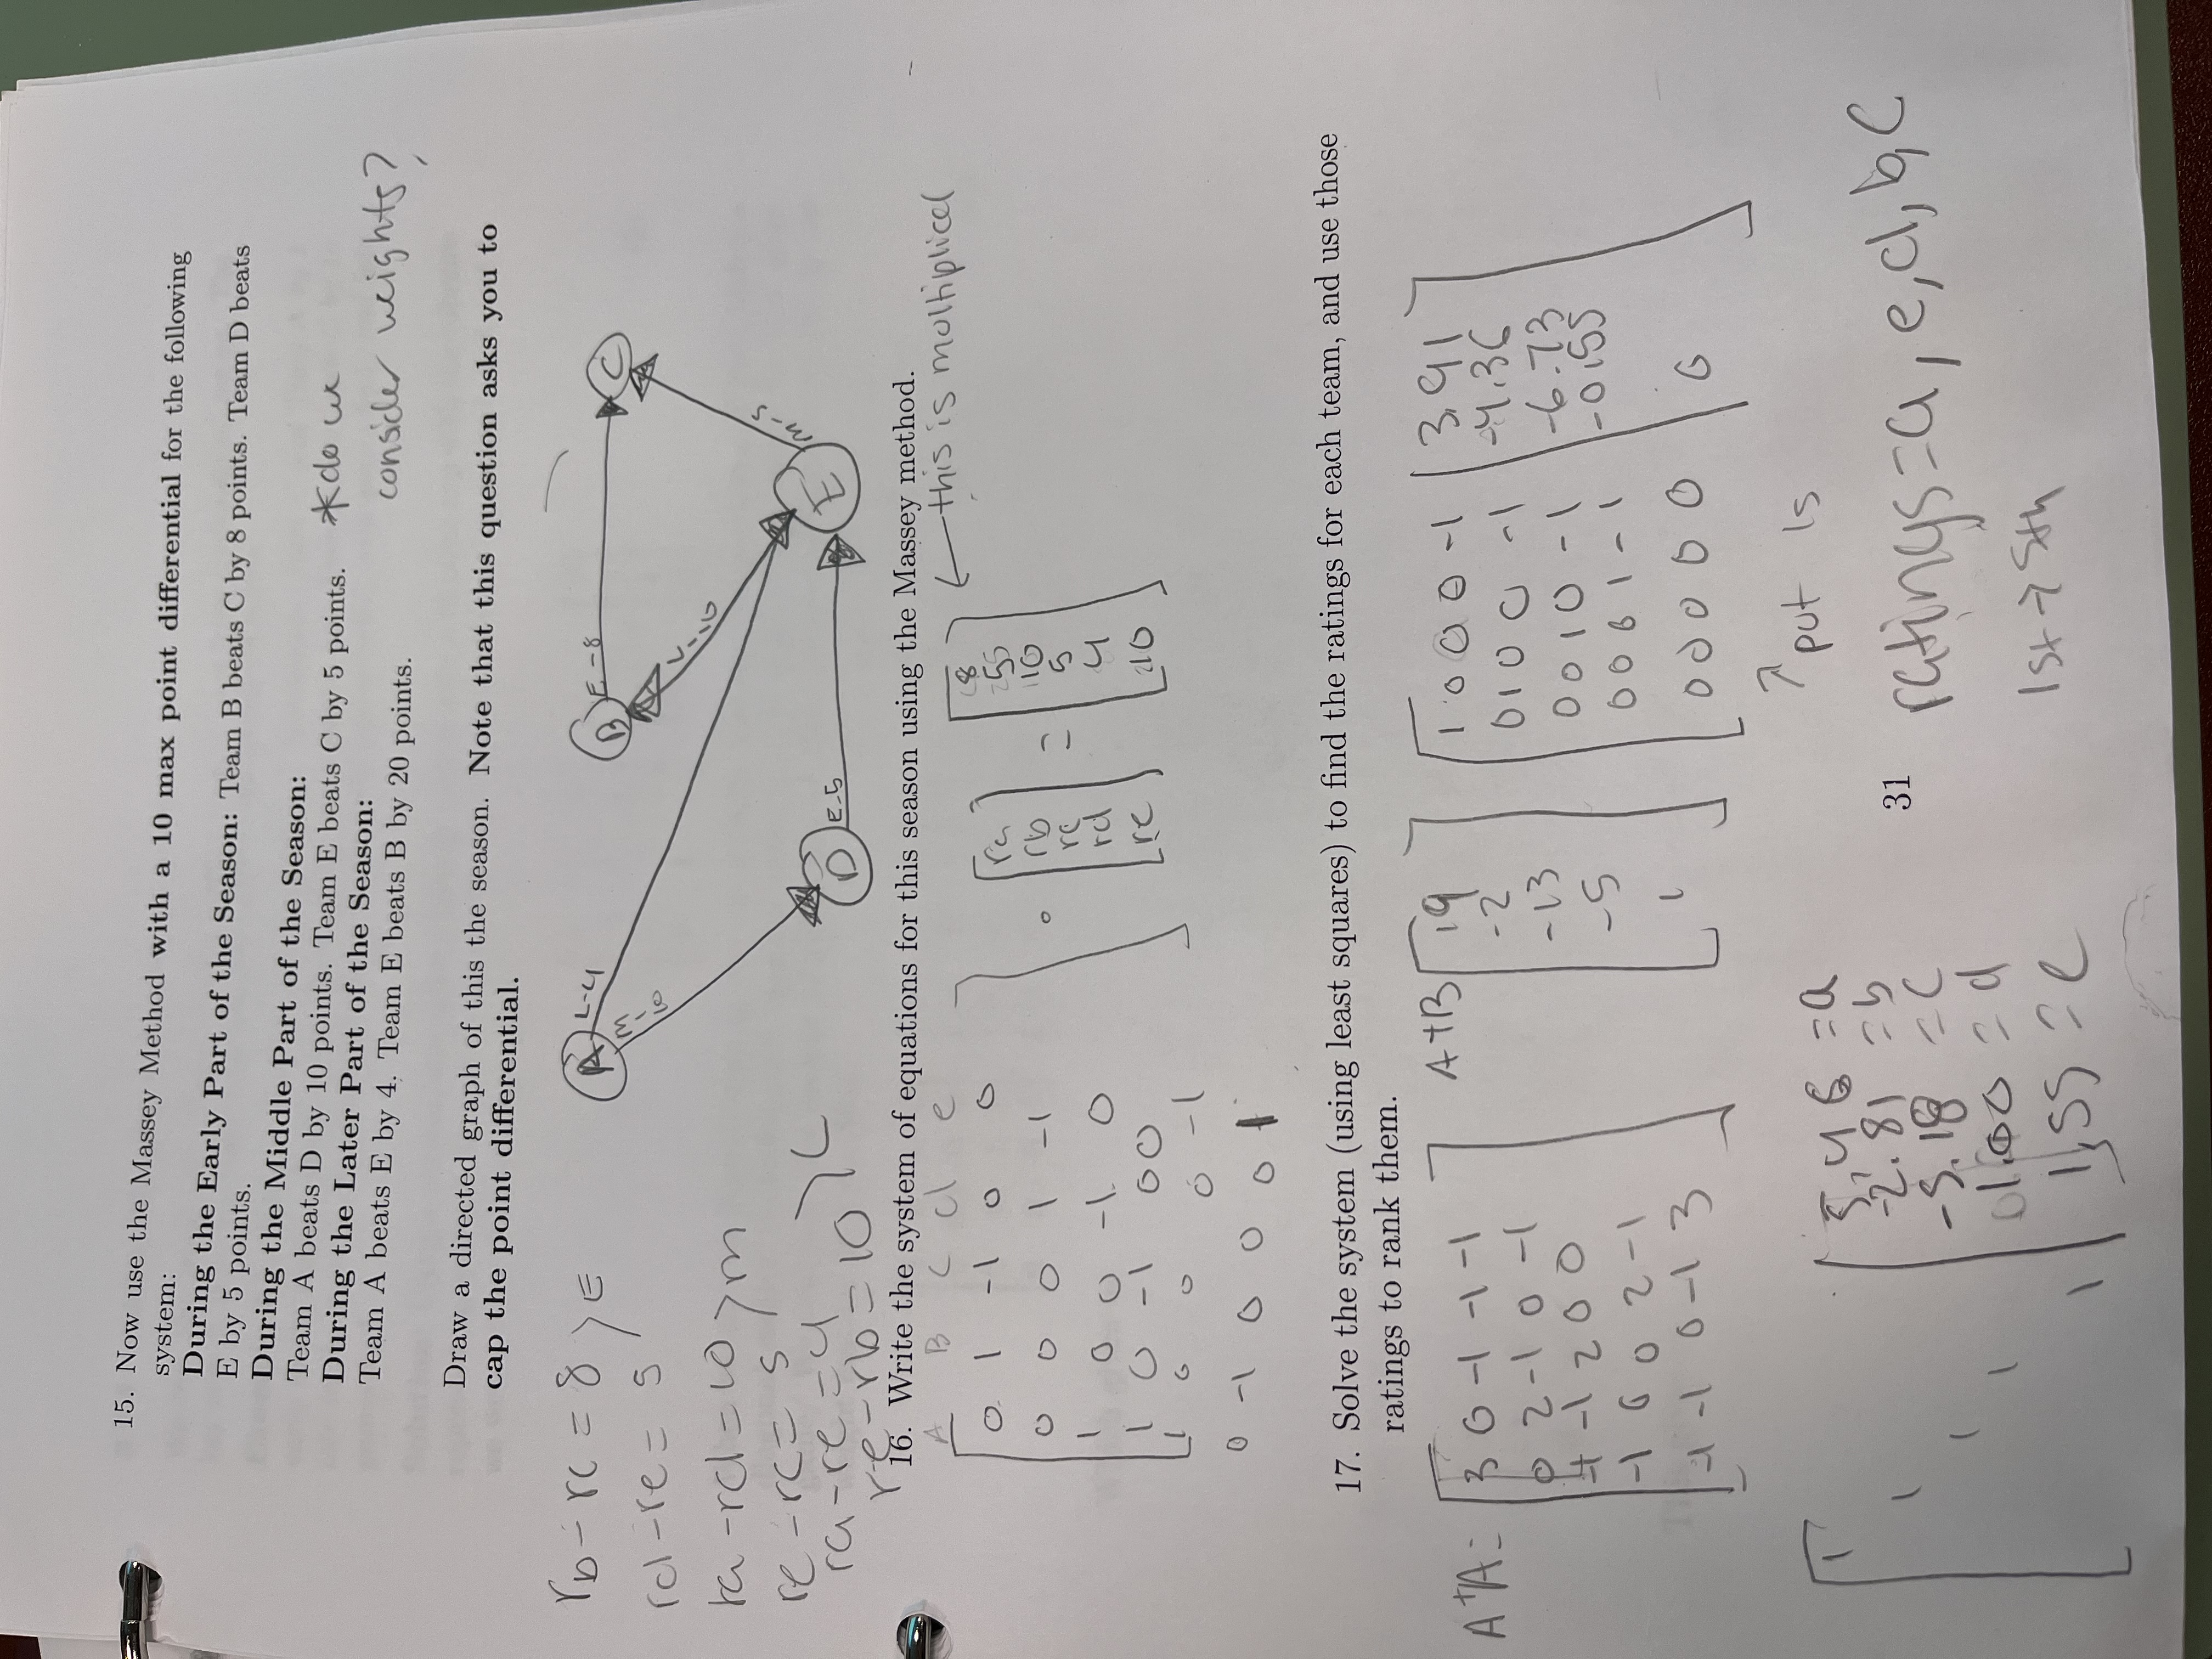 15. Now use the Massey Method with a 10 max point differential for the following
system:
During the Early Part of the Season: Team B beats C by 8 points. Team D beats
E by 5 points.
During the Middle Part of the Season:
Team A beats D by 10 points. Team E beats C by 5 points.
During the Later Part of the Season:
Team A beats E by 4. Team E beats B by 20 points.
*do we
consider weights?
Draw a directed graph of this the season. Note that this question asks you to
cap the point differential.
rb - rc = 8 > E
rd - re = 5
ra - rd = 10 > m
re - rc = 5
ra - re = 4 > L
re - rb = 10
A L-4 B E-8 C
M-10 L-10
D E-5 E M-5
16. Write the system of equations for this season using the Massey method.
A B C d e
0 1 -1 0 0
0 0 0 1 -1
1 0 0 -1 0
1 0 -1 0 0
1 0 0 0 -1
0 -1 0 0 0 1
·
ra
rb
rc
rd
re
=
8
5
10
5
4
10
← this is multiplied
17. Solve the system (using least squares) to find the ratings for each team, and use those
ratings to rank them.
A+A =
3 0 -1 -1 -1
0 2 -1 0 -1
-1 -1 2 0 0
-1 0 0 2 -1
-1 -1 0 -1 3
A+B
19
-2
-13
-5
1
1 0 0 0 -1 | 3.91
0 1 0 0 -1 | -4.36
0 0 1 0 -1 | -6.73
0 0 0 1 -1 | -0.55
0 0 0 0 0 | 0
↗ put 1s
1
1
1
1
1
5.46 = a
-2.81 = b
-5.18 = c
1.00 = d
1.55 = e
31
ratings = a, e, d, b, C
1st → 5th